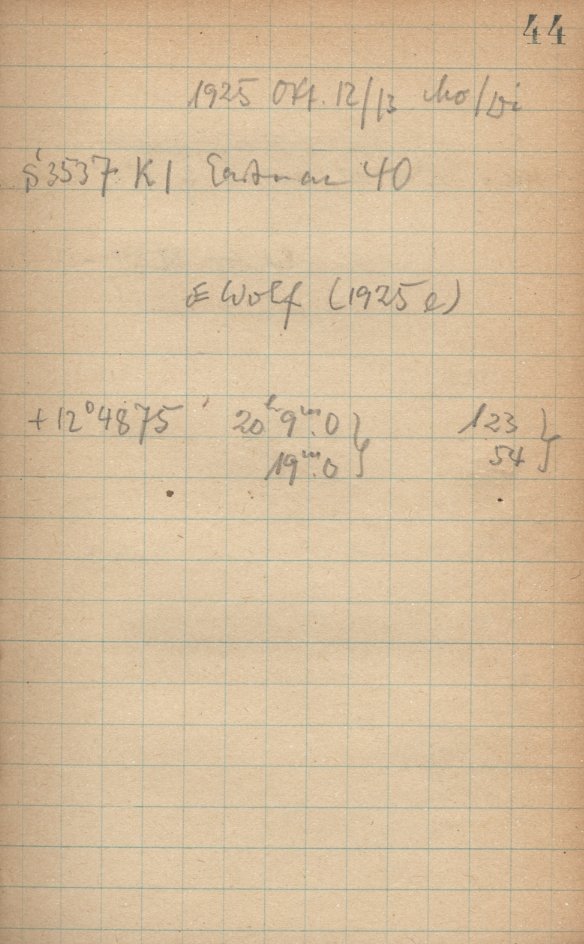 44
1925 Okt. 12/13 Mo/Di
S 3537 K1 Eastman 40
E Wolf (1925 e)
+12°4875 20ʰ9ᵐ.0 } 123 }
19ᵐ.0 54